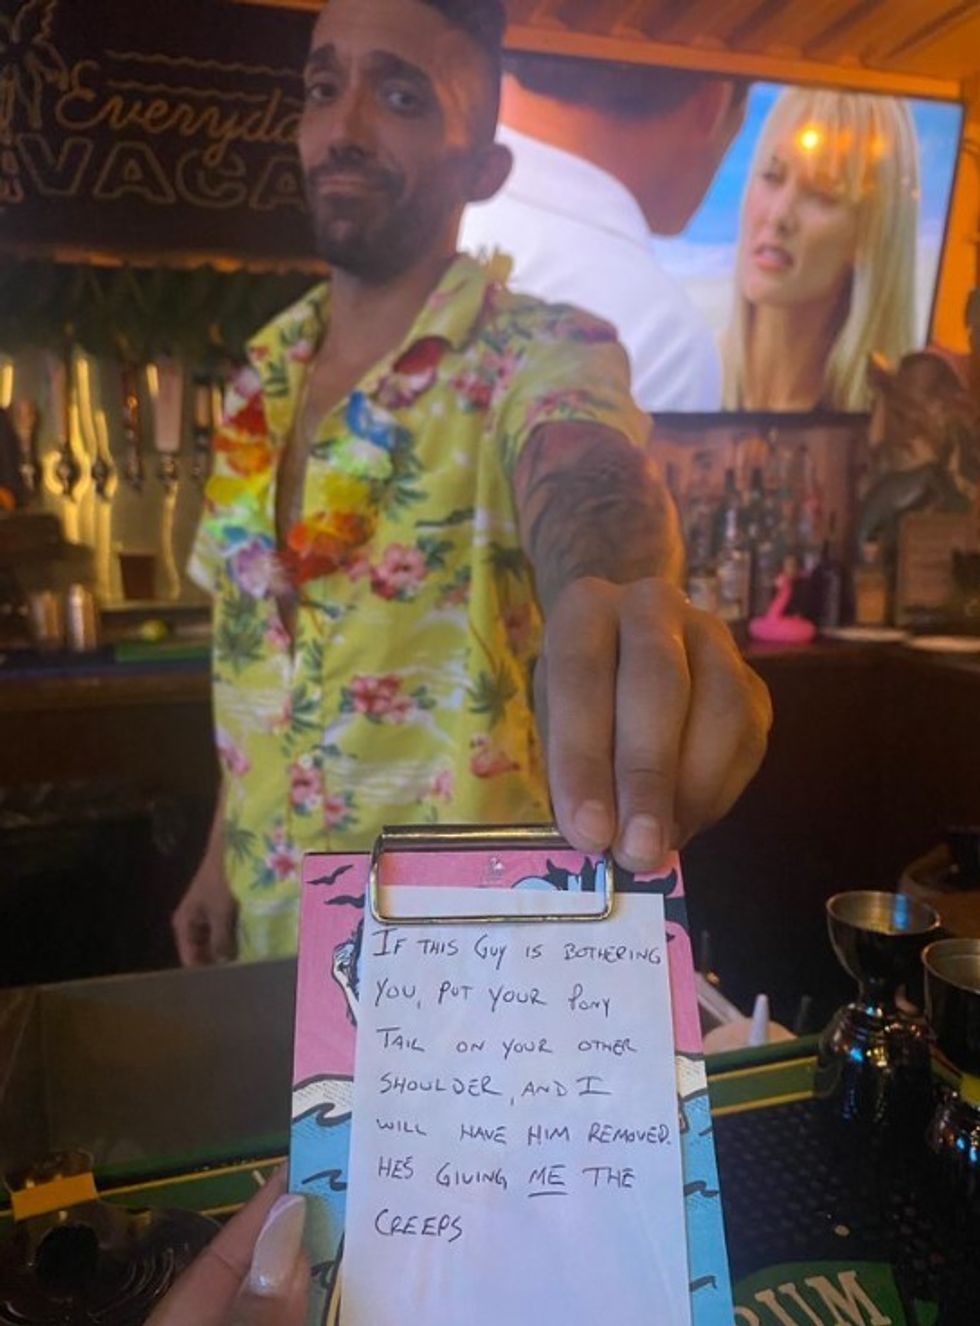 Everyda
VACA
IF THIS GUY IS BOTHERING
YOU, PUT YOUR PONY
TAIL ON YOUR OTHER
SHOULDER, AND I
WILL HAVE HIM REMOVED.
HE'S GIVING ME THE
CREEPS
RUM